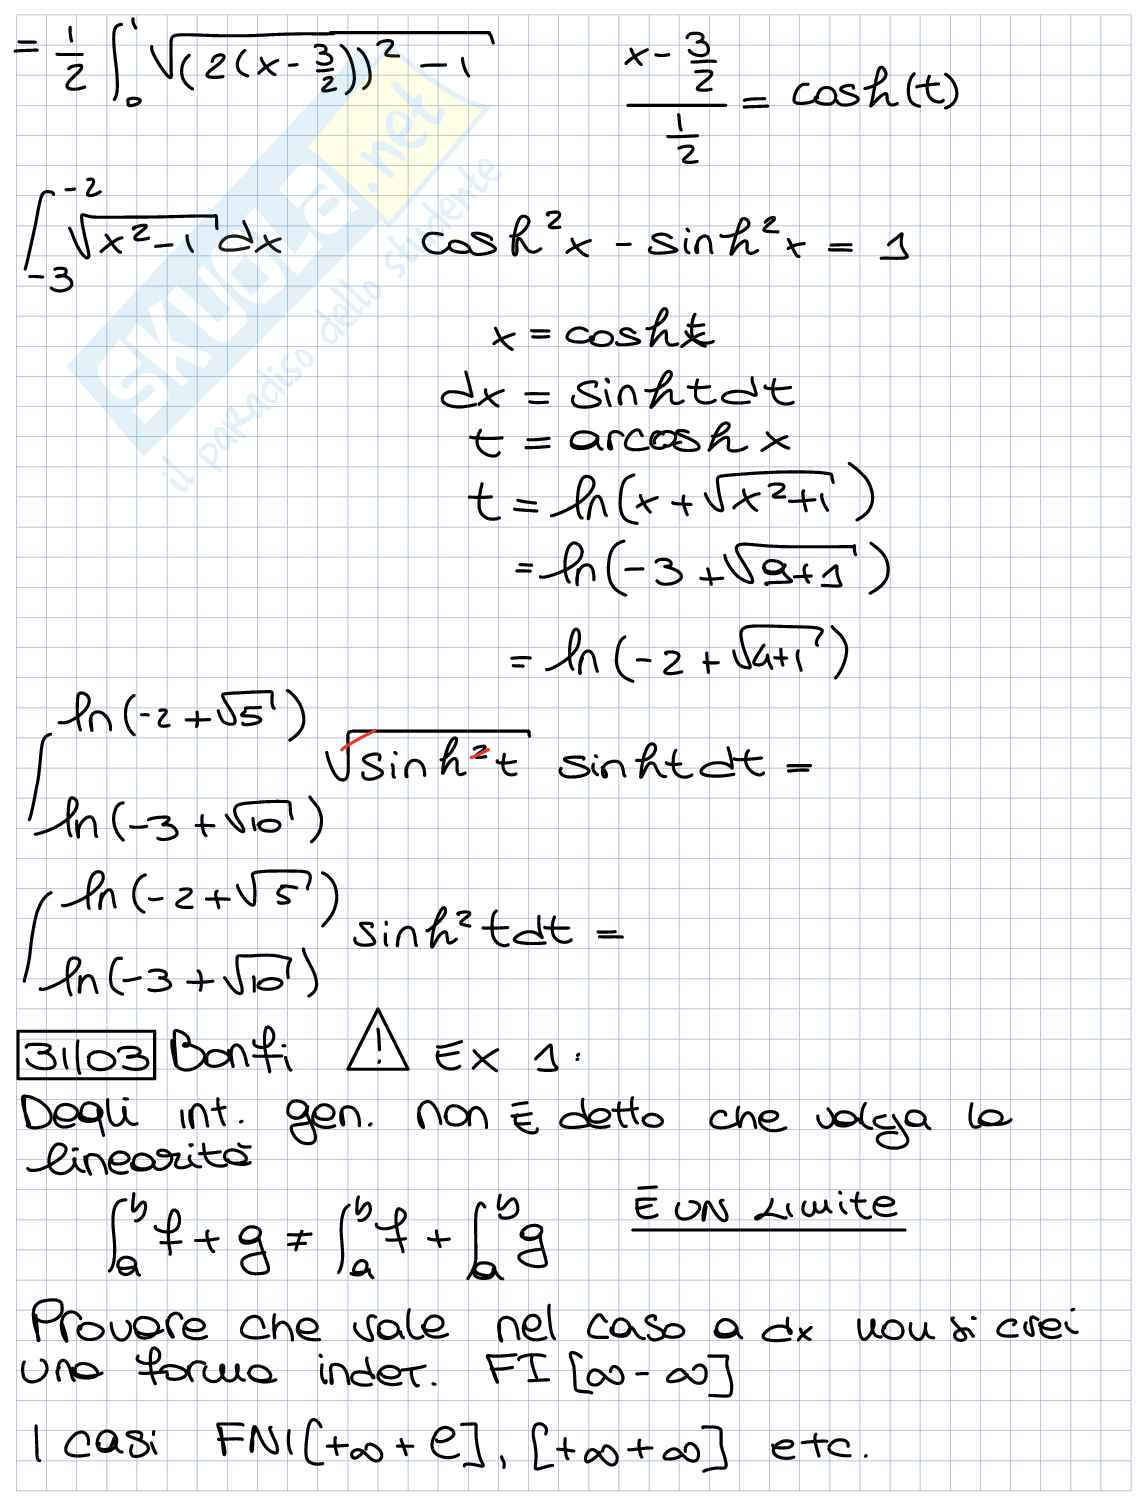 = 1/2 ∫₀¹ √((2(x - 3/2))² - 1)    (x - 3/2)/(1/2) = cosh(t)
∫₋₃⁻² √(x² - 1) dx    cosh²x - sinh²x = 1
x = cosht
dx = sinhtdt
t = arcosh x
t = ln(x + √(x²+1))
= ln(-3 + √(9+1))
= ln(-2 + √(4+1))
∫_{ln(-3 + √10)}^{ln(-2 + √5)} √(sinh²t) sinhtdt =
∫_{ln(-3 + √10)}^{ln(-2 + √5)} sinh²tdt =
31/03 Bonfi ⚠ EX 1.
Degli int. gen. non È detto che valga la
linearità
∫ₐᵇ f + g ≠ ∫ₐᵇ f + ∫ₐᵇ g    È UN LIMITE
Provare che vale nel caso a dx non si crei
una forma indet. FI [∞ - ∞]
I casi FNI [+∞ + e], [+∞ + ∞] etc.
SKUOLA.net
il paradiso dello studente